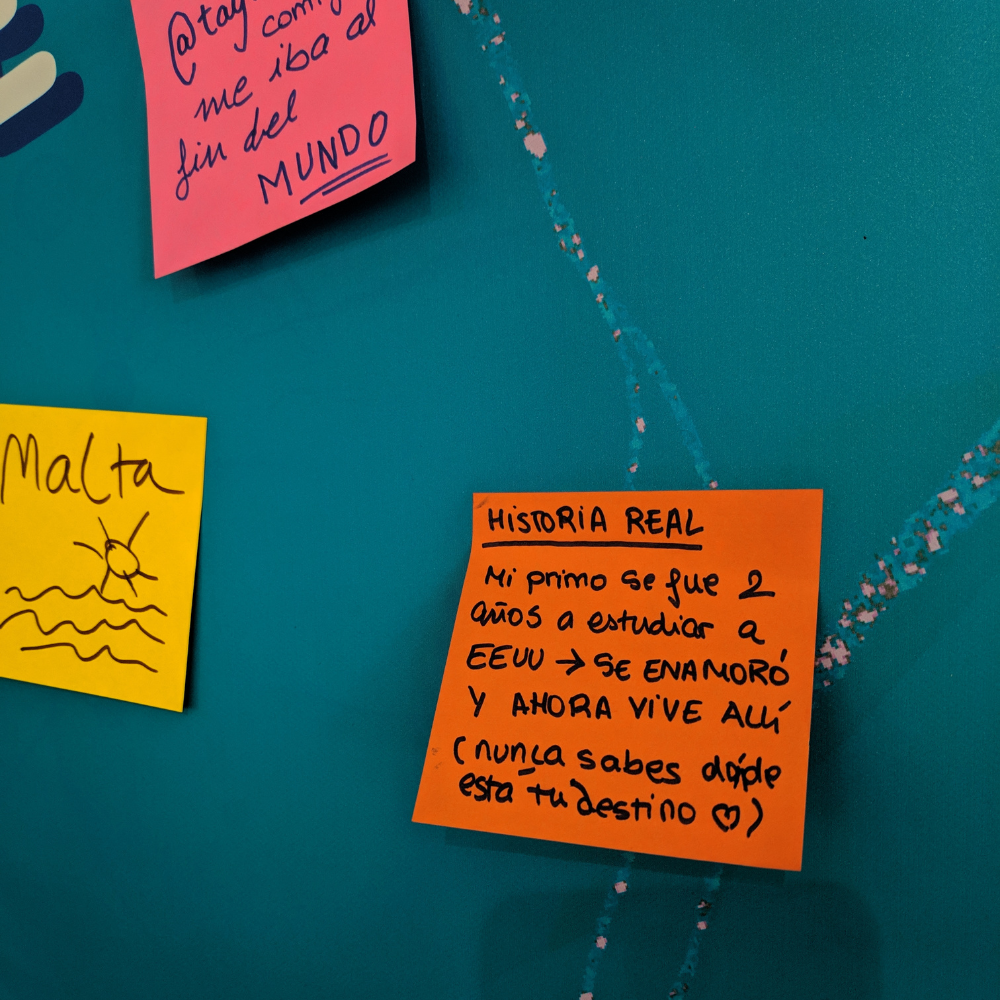 @tag
me iba al
fin del
MUNDO
Malta
HISTORIA REAL
Mi primo se fue 2
años a estudiar a
EEUU → SE ENAMORÓ
Y AHORA VIVE ALLÍ
(nunca sabes dónde
está tu destino ♡)